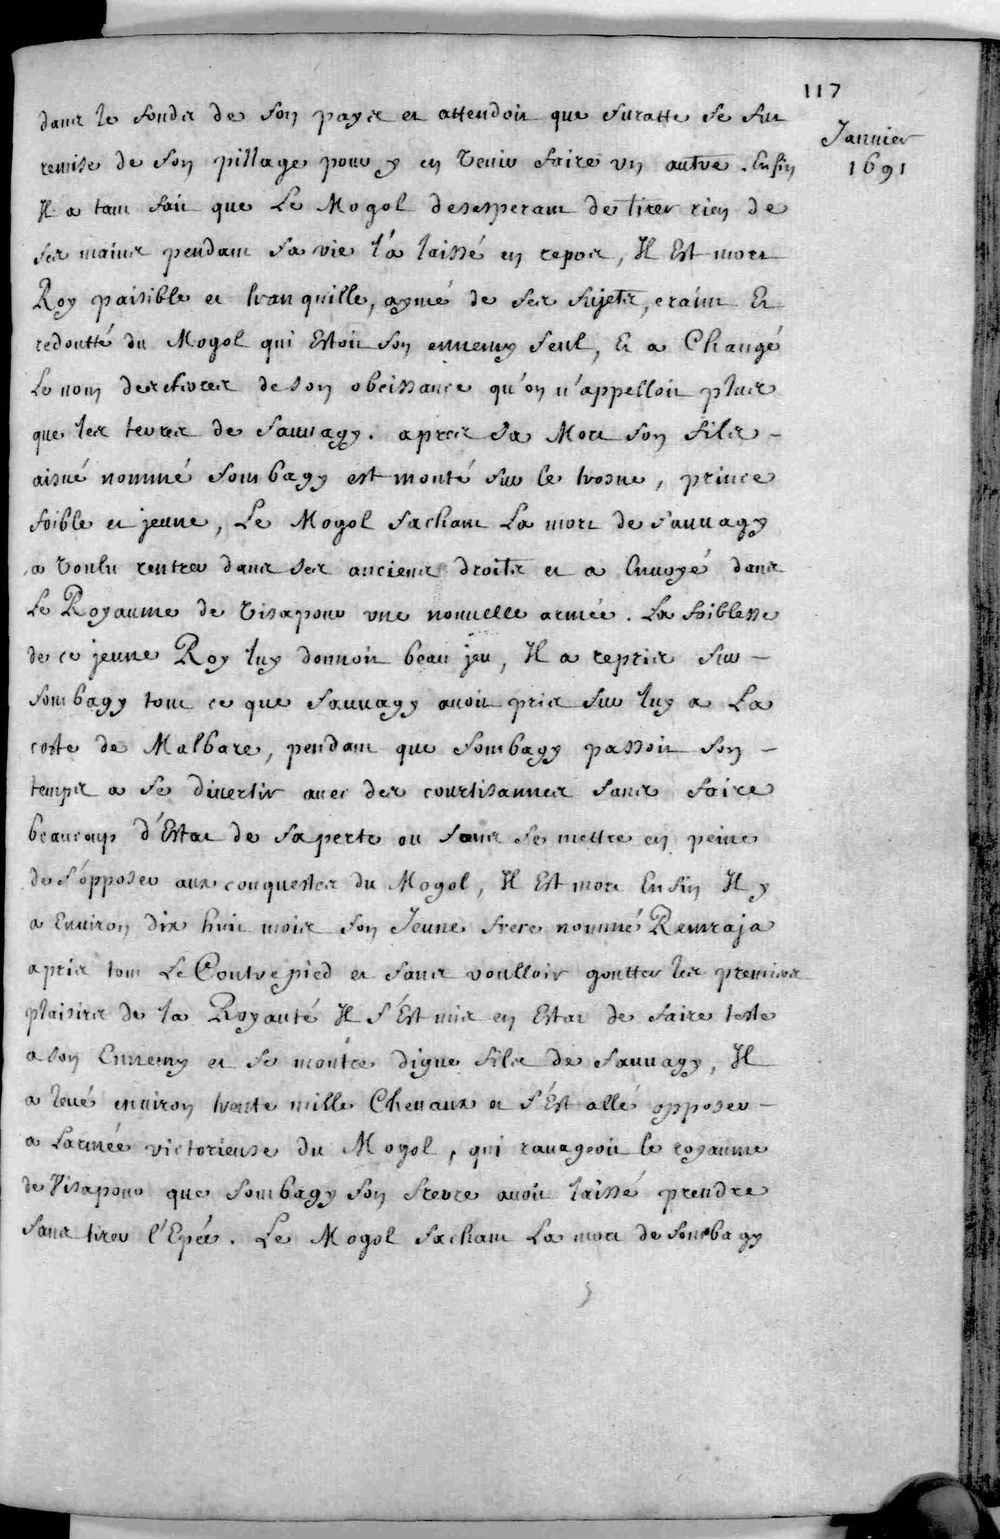 117
Janvier
1691
dans le fonds de son pays et attendoit que Suratte se fut
remise de son pillage pour y en venir faire un autre. Enfin
Il a tant fait que Le Mogol desesperant de tirer rien de
ses mains pendant sa vie l'a laissé en repos, Il Est mort
Roy paisible et tranquille, aymé de ses sujets, craint Et
redoutté du Mogol qui Estoit son ennemy seul, Et a Changé
Le nom des terres de son obeissance qu'on n'appelloit plus
que les terres de Sauvagy. apres sa Mort son fils
aisné nommé Sombagy est monté sur le trosne, prince
foible et jeune, Le Mogol sachant La mort de Sauvagy
a voulu rentrer dans ses anciens droits et a Envoyé dans
Le Royaume de Visapour une nouvelle armée. La foiblesse
de ce jeune Roy luy donnoit beau jeu, Il a repris sur
Sombagy tout ce que Sauvagy avoit pris sur luy a La
coste de Malbare, pendant que Sombagy passoit son
temps a se divertir avec des courtisannes sans faire
beaucoup d'Estat de sa perte ou sans se mettre en peine
de s'opposer aux conquestes du Mogol, Il Est mort Enfin Il y
a Environ dix huit mois son Jeune frere nommé Remraja
a pris tout Le Contrepied et sans voulloir goutter les premiers
plaisirs de la Royauté Il s'Est mis en Estat de faire teste
a son Ennemy et se montre digne fils de Sauvagy, Il
a levé environ trente mille Chevaux et s'Est allé opposer
a Larmée victorieuse du Mogol, qui ravageoit le royaume
de Visapour que Sombagy son frere avoit laissé prendre
sans tirer l'Epée. Le Mogol sachant La mort de Sombagy